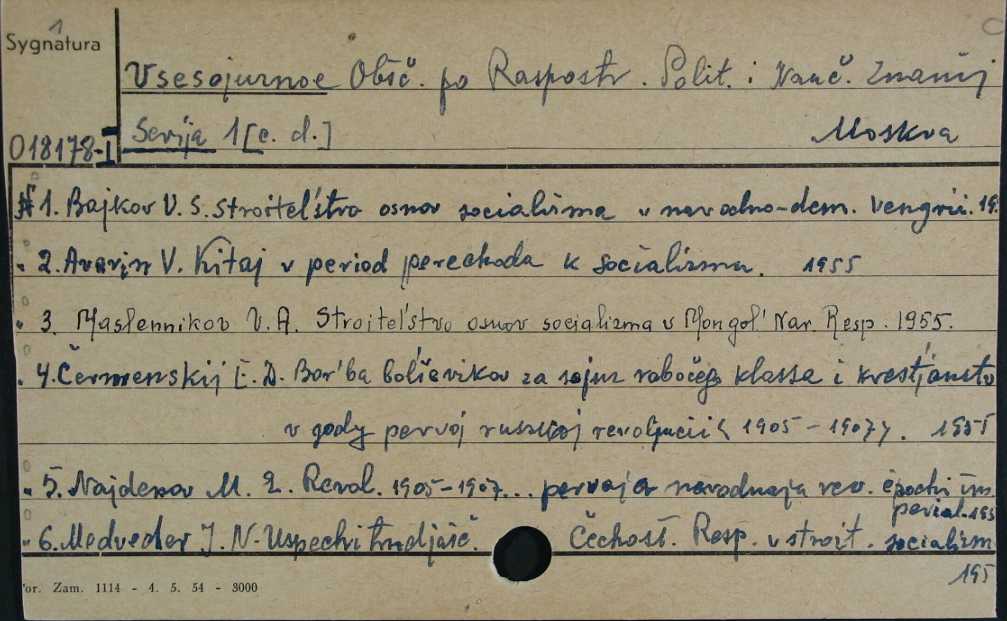 1
Sygnatura
Vsesojuznoe Obšč. po Raspostr. Polit. i Nauč. Znanij
018178-I
Serija 1 [c. d.] Moskva
1. Bajkov V. S. Stroitel'stvo osnov socializma v narodno-dem. Vengrii. 19
2. Avarin V. Kitaj v period perechoda k socializmu. 1955
3. Maslennikov V. A. Stroitel'stvo osnov socializma v Mongol' Nar. Resp. 1955.
4. Čermenskij E. D. Bor'ba bol'ševikov za sojuz rabočego klassa i krest'janstv
v gody pervoj russkoj revoljucii < 1905 - 1907 >. 1955
5. Najdenov M. E. Revol. 1905-1907... pervaja narodnaja rev. épochi im
perial. 195
6. Medvedev I. N. Uspechi trudjašč. Čechosł. Resp. v stroit. socializm
195
or. Zam. 1114 - 4. 5. 54 - 3000